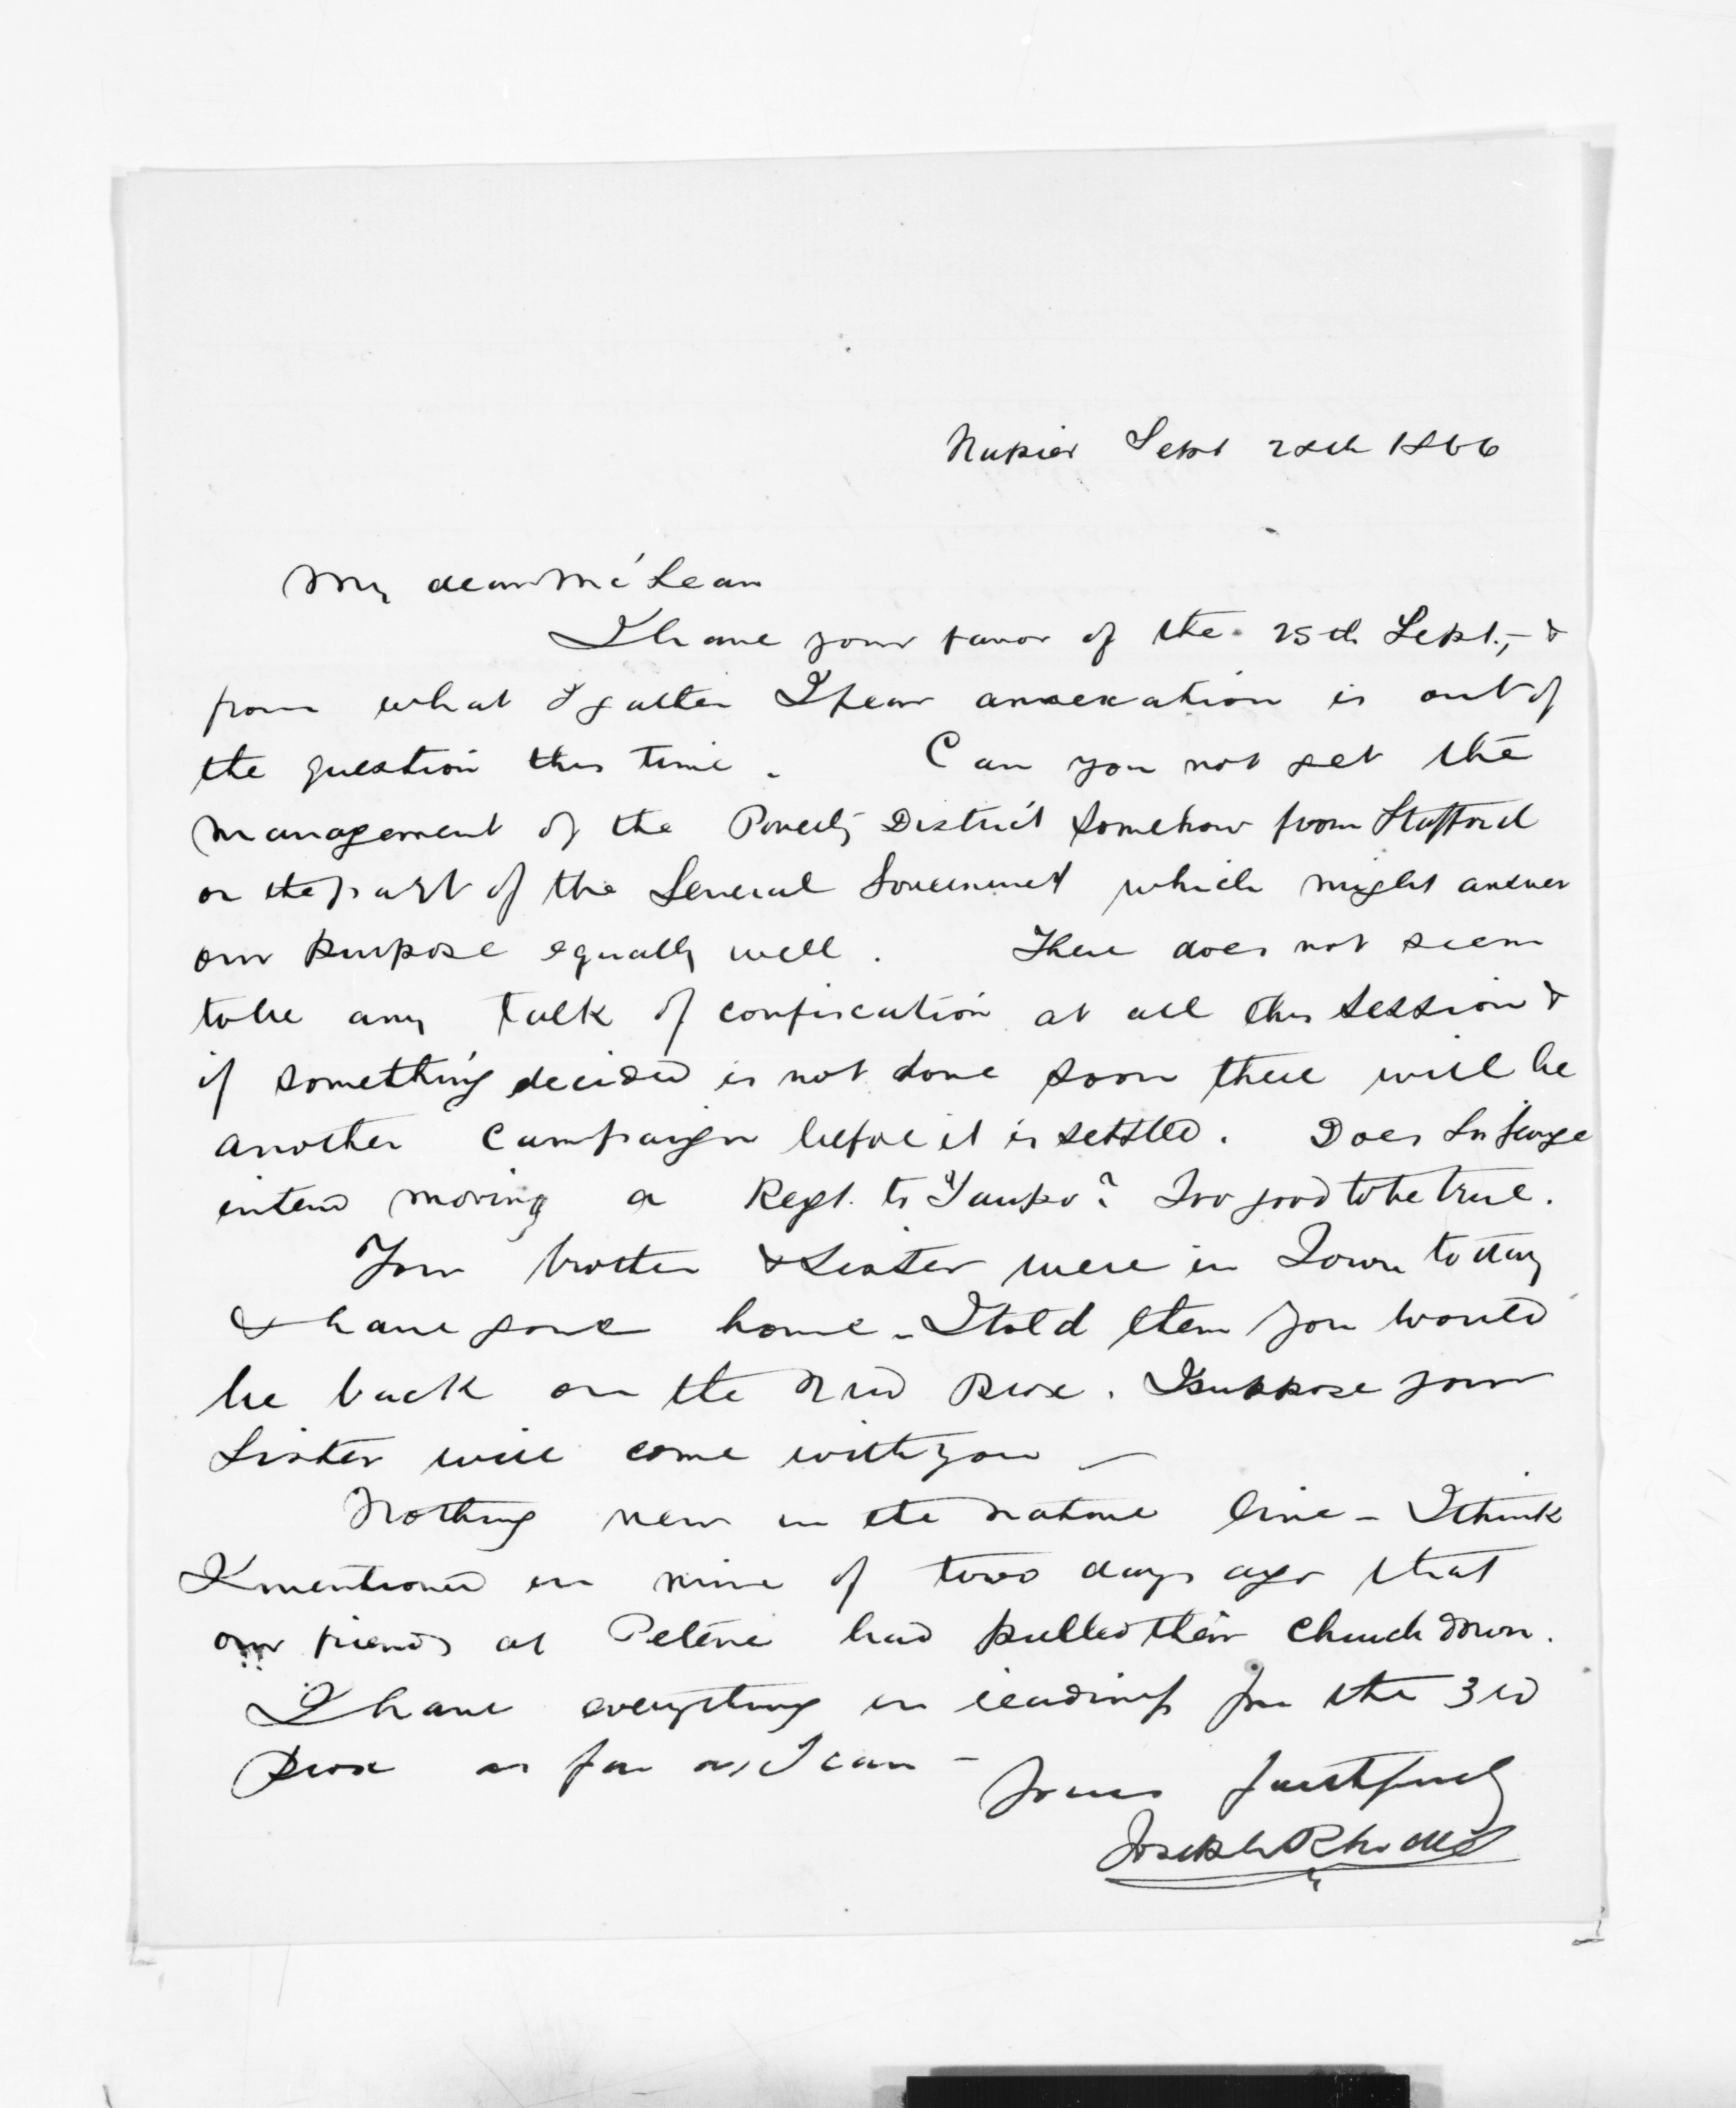 Napier Sept 28th 1866
My dear McLean
I have your favor of the 25th Sept., &
from what I gather I fear annexation is out of
the question this time. Can you not get the
management of the Poverty District somehow from Stafford
or the part of the General Government which might answer
our purpose equally well. There does not seem
to be any talk of confiscation at all this session &
if something decided is not done soon there will be
another campaign before it is settled. Does Sir George
intend moving a Regt. to Taupo? Too good to be true.
Your brother & Sister were in Town to day
& have gone home - I told them you would
be back on the 3rd prox. I suppose your
Sister will come with you -
Nothing new in the native line - I think
I mentioned in mine of two days ago that
our friends at Petane had pulled their church down.
I have everything in readiness for the 3rd
prox as far as I can -
Yours faithfully
Joseph Rhodes